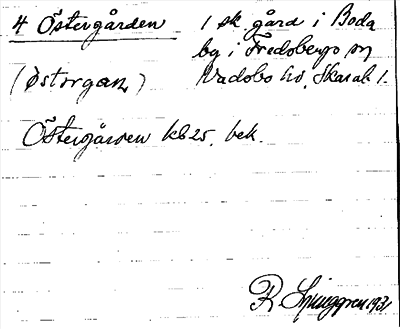 4 Östergården
1 sk. gård i Boda
by i Fredsbergs sn
Vadsbo hd, Skarab. l.
(östorgan)
Östergården kb 25, bek.
R Ljunggren 1931